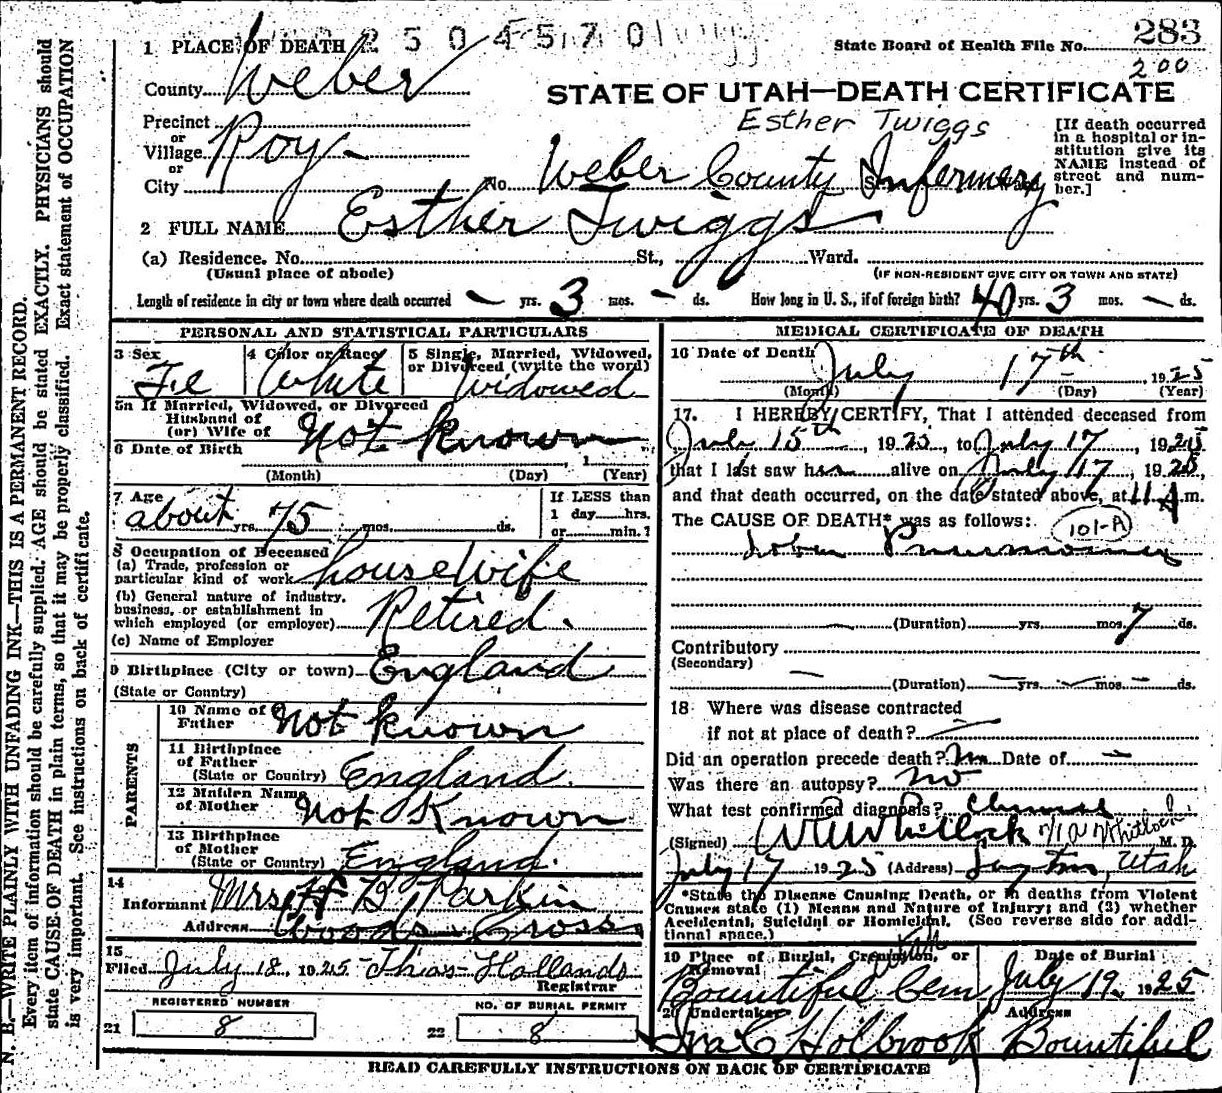 2504570
283
State Board of Health File No.
200
1 PLACE OF DEATH
County Weber
STATE OF UTAH—DEATH CERTIFICATE
Esther Twiggs
Precinct
or
Village Roy
or
City
No. Weber County Infermery
[If death occurred in a hospital or institution give its NAME instead of street and number.]
2 FULL NAME Esther Twiggs
(a) Residence. No. St., Ward.
(Usual place of abode)
(IF NON-RESIDENT GIVE CITY OR TOWN AND STATE)
Length of residence in city or town where death occurred — yrs. 3 mos. — ds. How long in U. S., if of foreign birth? 40 yrs. 3 mos. — ds.
PERSONAL AND STATISTICAL PARTICULARS
3 Sex Fe
4 Color or Race White
5 Single, Married, Widowed, or Divorced (write the word) Widowed
5a If Married, Widowed, or Divorced
Husband of
(or) Wife of Not known
6 Date of Birth
(Month) (Day) , 1 (Year)
7 Age about yrs. 75 mos. ds.
If LESS than
1 day hrs.
or min.?
8 Occupation of Deceased
(a) Trade, profession or particular kind of work housewife
(b) General nature of industry, business, or establishment in which employed (or employer) Retired.
(c) Name of Employer
9 Birthplace (City or town) England
(State or Country)
PARENTS
10 Name of Father Not known
11 Birthplace of Father (State or Country) England
12 Maiden Name of Mother Not Known
13 Birthplace of Mother (State or Country) England.
14
Informant Mrs H B Parkin
Address Woods Cross
15
Filed July 18, 1925 Thos Hollands
Registrar
REGISTERED NUMBER
21 8
NO. OF BURIAL PERMIT
22 8
MEDICAL CERTIFICATE OF DEATH
16 Date of Death July 17th, 1925
(Month) (Day) (Year)
17. I HEREBY CERTIFY, That I attended deceased from
July 15th, 1925, to July 17, 1925,
that I last saw her alive on July 17, 1925,
and that death occurred, on the date stated above, at 11 A m.
The CAUSE OF DEATH* was as follows: 101-A
Lobar Pneumonia
(Duration) yrs. mos. 7 ds.
Contributory
(Secondary)
(Duration) — yrs. — mos. — ds.
18 Where was disease contracted
if not at place of death? —
Did an operation precede death? No Date of —
Was there an autopsy? no
What test confirmed diagnosis? Clinical
(Signed) W E Whitlock Whitlock M. D.
July 17 1925 (Address) Layton, Utah
*State the Disease Causing Death, or in deaths from Violent
Causes state (1) Means and Nature of Injury; and (2) whether
Accidental, Suicidal or Homicidal. (See reverse side for additional space.)
19 Place of Burial, Cremation, or Removal Utah
Bountiful Cem
Date of Burial
July 19, 1925
20 Undertaker
Ira C Holbrook
Address
Bountiful
READ CAREFULLY INSTRUCTIONS ON BACK OF CERTIFICATE
N. B.—WRITE PLAINLY WITH UNFADING INK—THIS IS A PERMANENT RECORD.
Every item of information should be carefully supplied. AGE should be stated EXACTLY. PHYSICIANS should
state CAUSE OF DEATH in plain terms, so that it may be properly classified. Exact statement of OCCUPATION
is very important. See instructions on back of certificate.